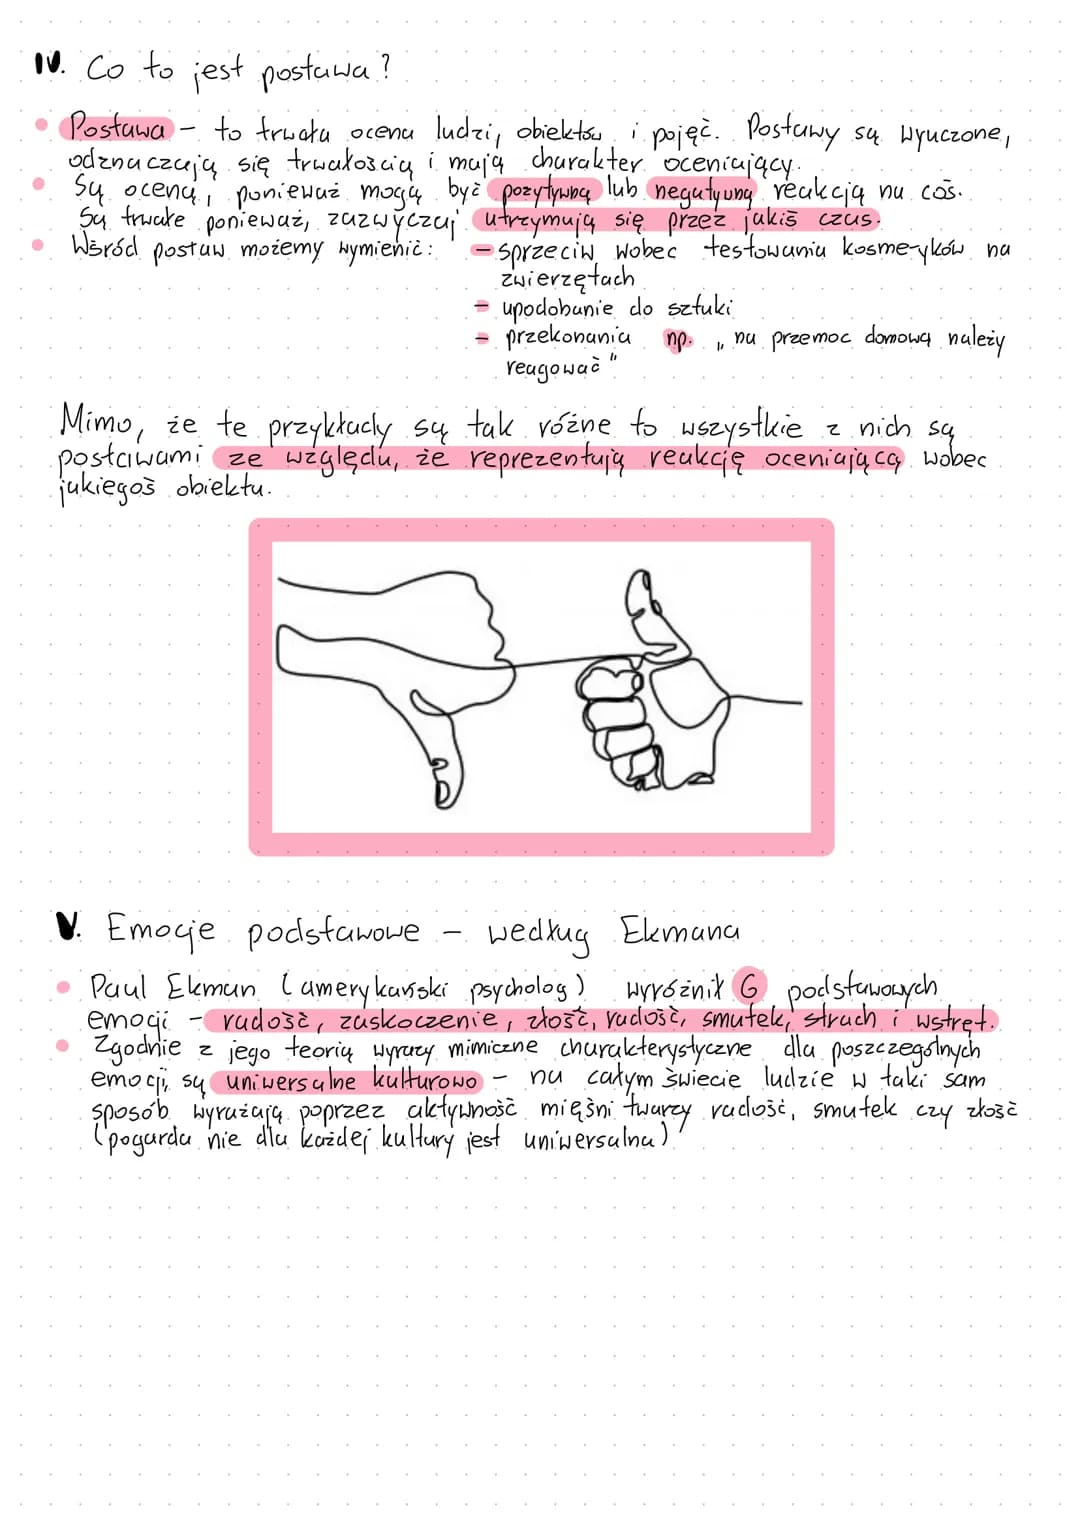 IV. Co to jest postawa?
Postawa – to trwała ocena ludzi, obiektów i pojęć. Postawy są wyuczone,
odznaczają się trwałością i mają charakter oceniający.
Są oceną, ponieważ mogą być pozytywną lub negatywną reakcją na coś.
Są trwałe ponieważ, zazwyczaj utrzymują się przez jakiś czas.
Wśród postaw możemy wymienić: – sprzeciw wobec testowania kosmetyków na
zwierzętach
– upodobanie do sztuki
– przekonania np. „na przemoc domową należy
reagować"
Mimo, że te przykłady są tak różne to wszystkie z nich są
postawami ze względu, że reprezentują reakcję oceniającą wobec
jakiegoś obiektu.
V. Emocje podstawowe – według Ekmana
Paul Ekman (amerykański psycholog) wyróżnił 6 podstawowych
emocji – radość, zaskoczenie, złość, radość, smutek, strach i wstręt.
Zgodnie z jego teorią wyrazy mimiczne charakterystyczne dla poszczególnych
emocji, są uniwersalne kulturowo – na całym świecie ludzie w taki sam
sposób wyrażają poprzez aktywność mięśni twarzy radość, smutek czy złość
(pogarda nie dla każdej kultury jest uniwersalna)